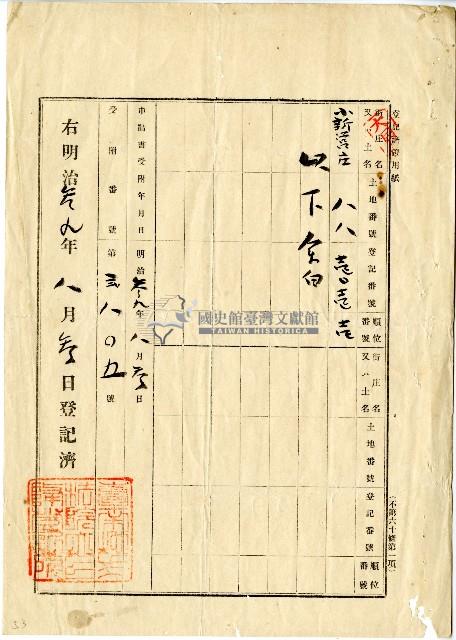 登記濟證用紙
街庄名又ハ土名 土地番號 登記番號 順位番號 街庄名又ハ土名 土地番號 登記番號 順位番號
小新營庄 八八
以下余白
申請書受附年月日 明治參九年八月參日
受附番號 第 八〇五號
右明治參九年八月參日登記濟
(不第六十條第一項)
國史館臺灣文獻館
TAIWAN HISTORICA
53